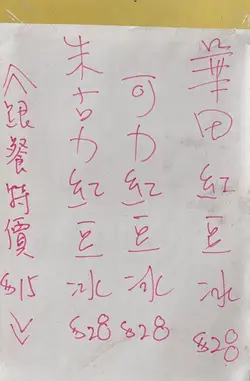 華田紅豆冰$28
可力紅豆冰$28
朱古力紅豆冰$28
<跟餐特價$15>